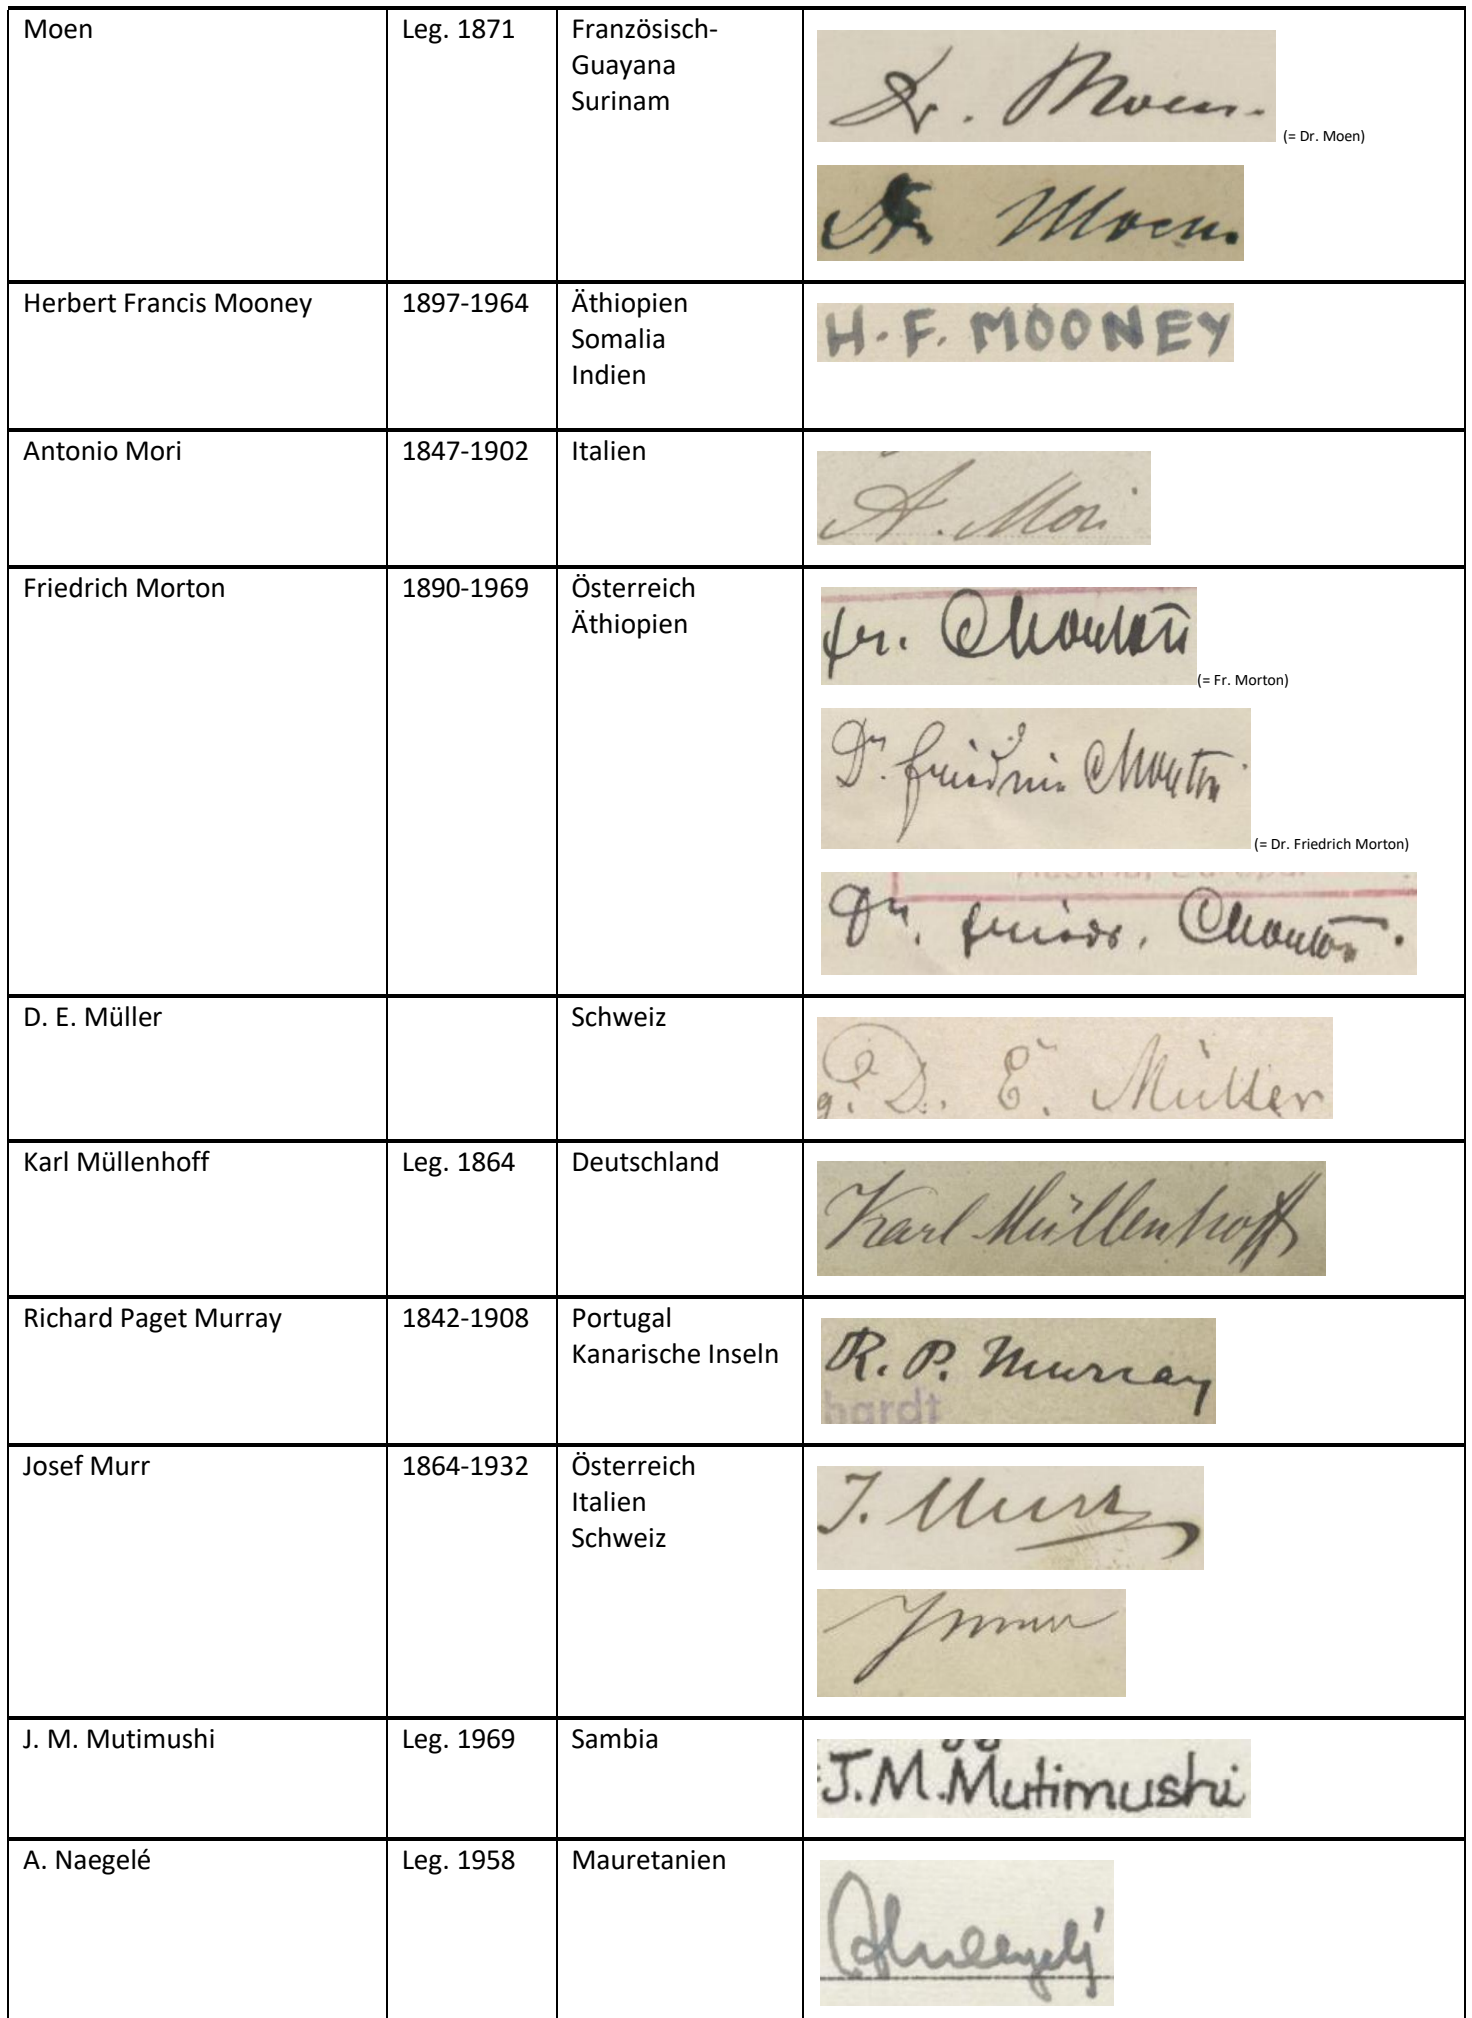 Moen
Leg. 1871
Französisch-
Guayana
Surinam
Dr. Moen.
(= Dr. Moen)
Dr Moen.
Herbert Francis Mooney
1897-1964
Äthiopien
Somalia
Indien
H. F. MOONEY
Antonio Mori
1847-1902
Italien
A. Mori
Friedrich Morton
1890-1969
Österreich
Äthiopien
Fr. Morton
(= Fr. Morton)
Dr. Friedrich Morton
(= Dr. Friedrich Morton)
Dr. Friedr. Morton.
D. E. Müller
Schweiz
g. D. E. Müller
Karl Müllenhoff
Leg. 1864
Deutschland
Karl Müllenhoff
Richard Paget Murray
1842-1908
Portugal
Kanarische Inseln
R. P. Murray
hardt
Josef Murr
1864-1932
Österreich
Italien
Schweiz
J. Murr
J Murr
J. M. Mutimushi
Leg. 1969
Sambia
J.M.Mutimushi
A. Naegelé
Leg. 1958
Mauretanien
ANaegelé